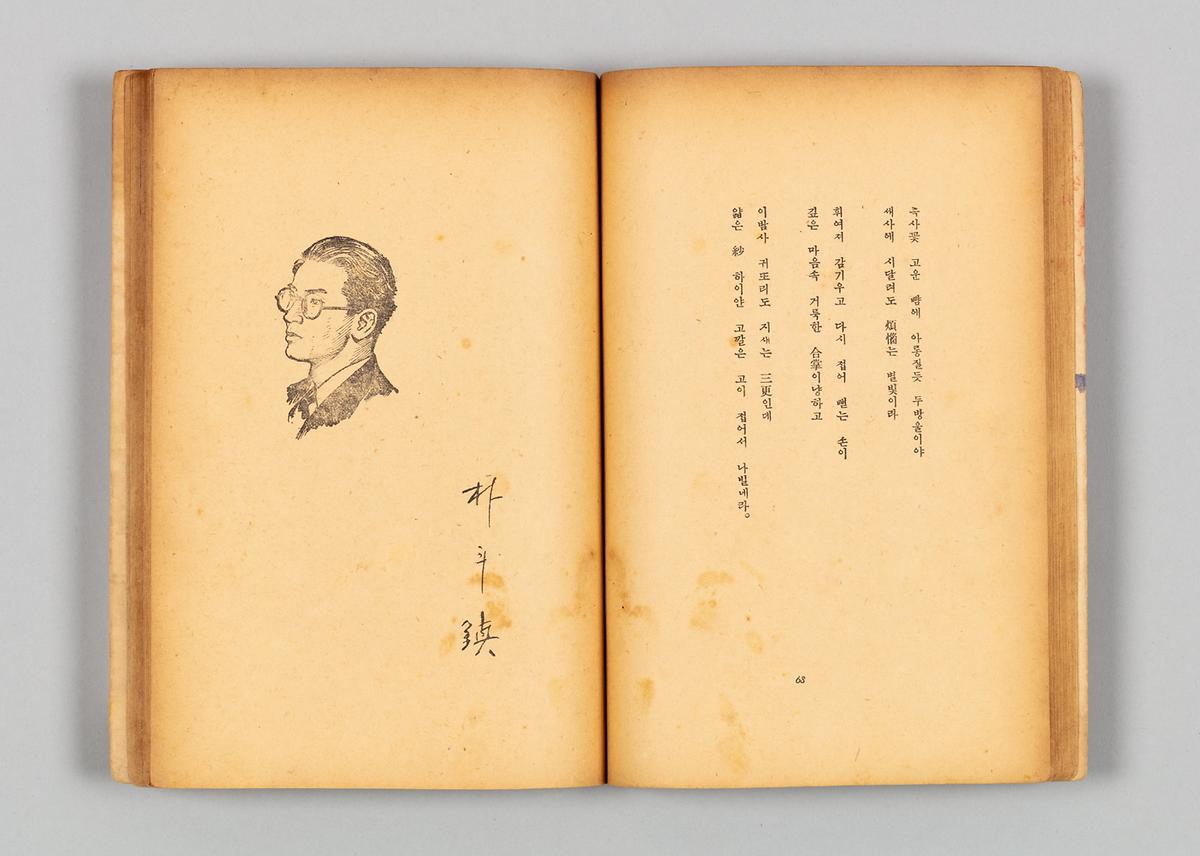 복사꽃 고운 뺨에 아롱질듯 두방울이야
세사에 시달려도 煩惱는 별빛이라
휘여저 감기우고 다시 접어 뻗는 손이
깊은 마음속 거룩한 合掌이냥하고
이밤사 귀또리도 지새는 三更인데
얇은 紗 하이얀 고깔은 고이 접어서 나빌네라。
63
朴斗鎭